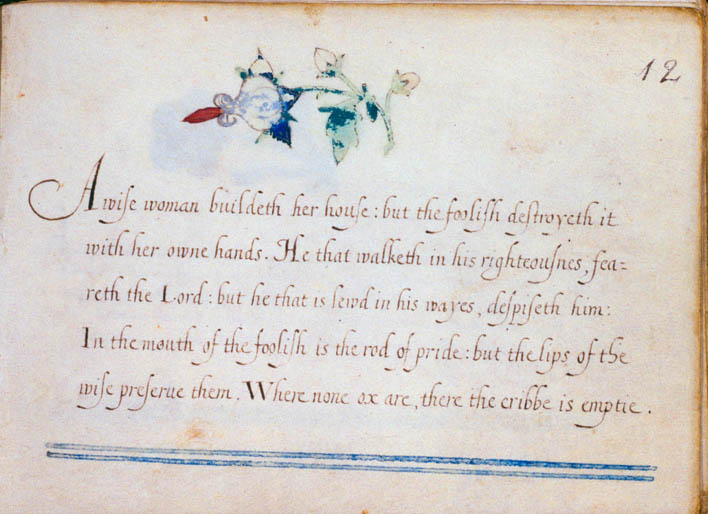 12
A wiſe woman buildeth her houſe: but the fooliſh deſtroyeth it
with her owne hands. He that walketh in his righteouſnes, fea=
reth the Lord: but he that is lewd in his wayes, deſpiſeth him:
In the mouth of the fooliſh is the rod of pride: but the lips of the
wiſe preſerue them. Where none ox are, there the cribbe is emptie.